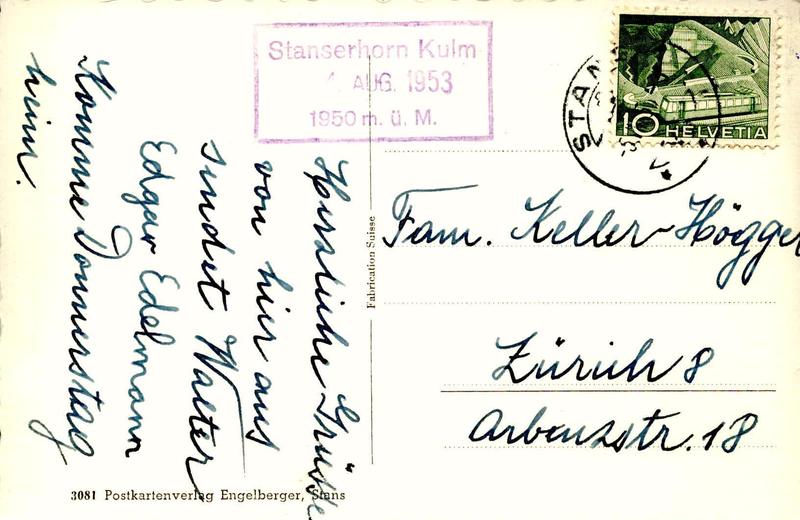 Stanserhorn Kulm
4. AUG. 1953
1950 m. ü. M.
STANS
10 HELVETIA
Herzliche Grüsse
von hier aus
sendet Walter
Edgar Edelmann
Komme Donnerstag
heim.
Fabrication Suisse
Fam. Keller-Högger
Zürich 8
Arbenzstr. 18
3081 Postkartenverlag Engelberger, Stans